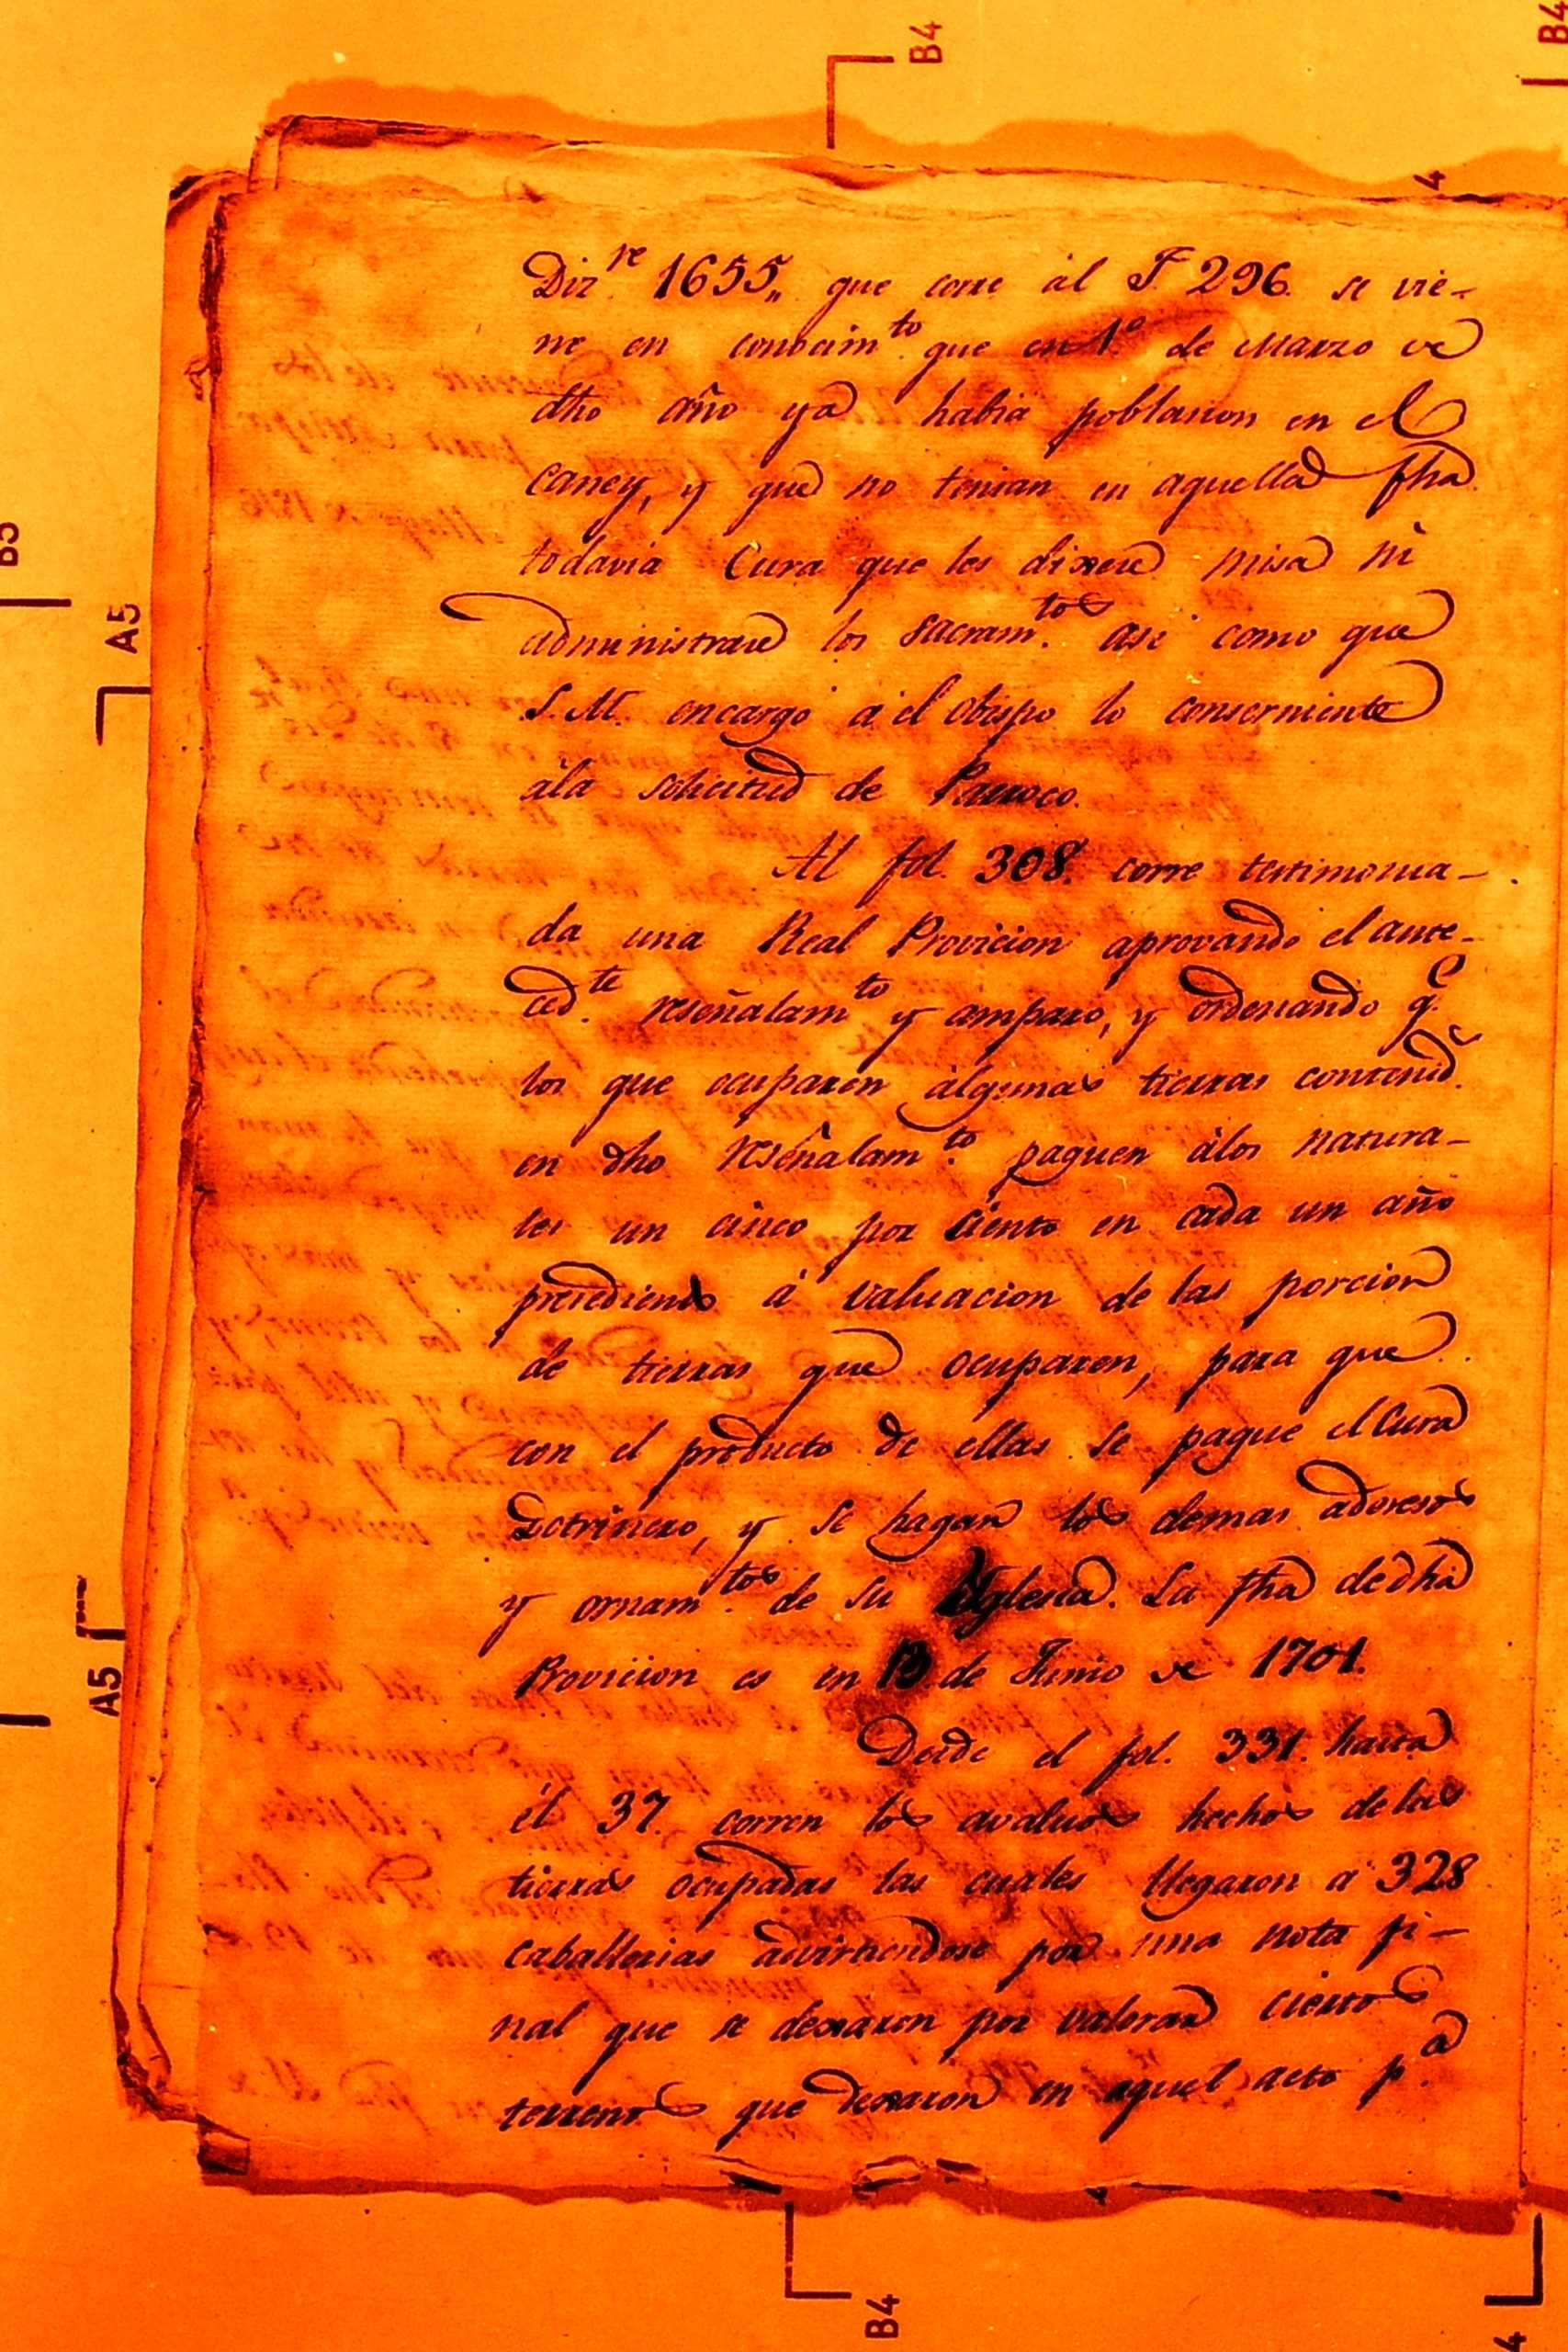 B4
B4
4
Diz.re 1655,, que corre ál F. 296. se vie-
ne en conocim.to que en 1.º de Marzo de
dho año ya habia poblasion en el
Caney, y que no tenian en aquella fha
todavia Cura que les dixese misa ni
administrase los sacram.tos asi como que
S.M. encargó á el obispo lo conserniente
ála solicitud de Parroco.
Al fol. 308. corre testimonia-
da una Real Provicion aprovando el ante-
ced.te reseñalam.to y amparo, y ordenando q.e
los que ocuparen álgunas tierras contenid.s
en dho reseñalam.to paguen álos natura-
les un cinco por ciento en cada un año
presediendo á valuacion de las porcion
de tierras que ocuparen, para que
con el producto de ellas se pague el Cura
Dotrinero, y se hagan los demas aderesos
y ornam.tos de su Yglesia. La fha de dha
Provicion es en 13 de Junio de 1701.
Desde el fol. 331. hasta
él 37. corren los avaluos hechos de las
tierras ocupadas las cuales llegaron á 328
caballerias advirtiendose por una nota fi-
nal que se dexaron por valorar ciertos
terrenos que dexaron en aquel acto p.a
B5
A5
A5
B4
4